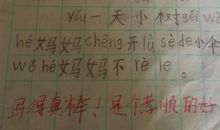 yǒu一天小树gěi w
hé妈妈chēng开lǜ sè de小伞
wǒ hé妈妈不rè le。
写得真棒!是个孝顺的好